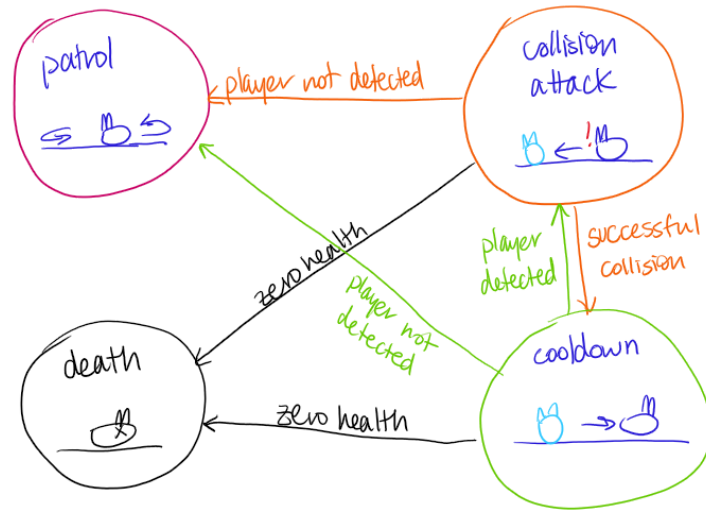 patrol
player not detected
collision
attack
!
zero health
player not
detected
player
detected
successful
collision
death
zero health
cooldown